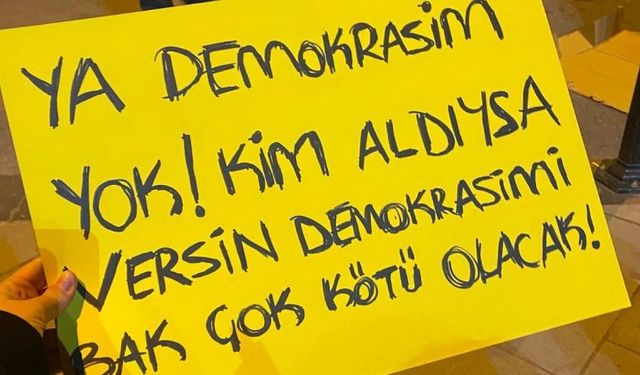 YA DEMOKRASİM
YOK! KİM ALDIYSA
VERSİN DEMOKRASİMİ
BAK ÇOK KÖTÜ OLACAK!